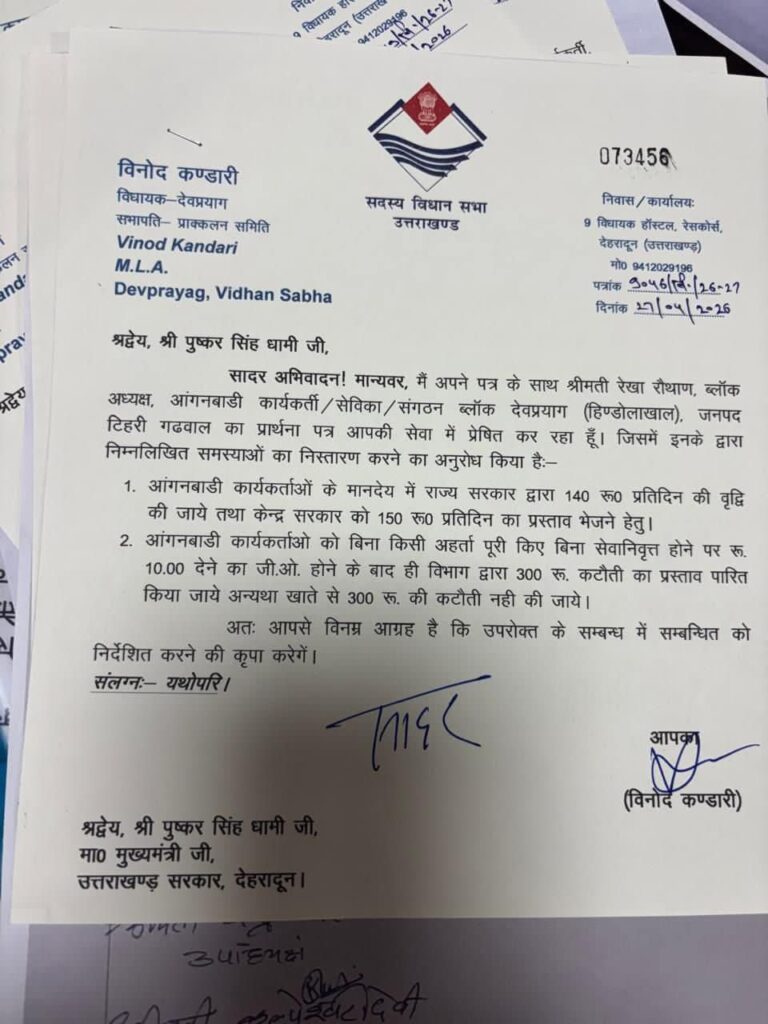 9 विधायक
9412029196
2026
073456
विनोद कण्डारी
विधायक–देवप्रयाग
सभापति– प्राक्कलन समिति
Vinod Kandari
M.L.A.
Devprayag, Vidhan Sabha
सदस्य विधान सभा
उत्तराखण्ड
निवास/कार्यालयः
9 विधायक हॉस्टल, रेसकोर्स,
देहरादून (उत्तराखण्ड)
मो0 9412029196
पत्रांक 9046/वि./26-27
दिनांक 27/04/2026
श्रद्वेय, श्री पुष्कर सिंह धामी जी,
सादर अभिवादन! मान्यवर, मैं अपने पत्र के साथ श्रीमती रेखा रौथाण, ब्लॉक
अध्यक्ष, आंगनबाडी कार्यकर्ती/सेविका/संगठन ब्लॉक देवप्रयाग (हिण्डोलाखाल), जनपद
टिहरी गढवाल का प्रार्थना पत्र आपकी सेवा में प्रेषित कर रहा हूँ। जिसमें इनके द्वारा
निम्नलिखित समस्याओं का निस्तारण करने का अनुरोध किया हैः–
1. आंगनबाडी कार्यकर्ताओं के मानदेय में राज्य सरकार द्वारा 140 रू0 प्रतिदिन की वृद्वि
की जाये तथा केन्द्र सरकार को 150 रू0 प्रतिदिन का प्रस्ताव भेजने हेतु।
2. आंगनबाडी कार्यकर्ताओ को बिना किसी अहर्ता पूरी किए बिना सेवानिवृत्त होने पर रू.
10.00 देने का जी.ओ. होने के बाद ही विभाग द्वारा 300 रू. कटौती का प्रस्ताव पारित
किया जाये अन्यथा खाते से 300 रू. की कटौती नही की जाये।
अतः आपसे विनम्र आग्रह है कि उपरोक्त के सम्बन्ध में सम्बन्धित को
निर्देशित करने की कृपा करेगें।
संलग्नः– यथोपरि।
सादर
आपका
(विनोद कण्डारी)
श्रद्वेय, श्री पुष्कर सिंह धामी जी,
मा0 मुख्यमंत्री जी,
उत्तराखण्ड़ सरकार, देहरादून।
उपाध्यक्ष